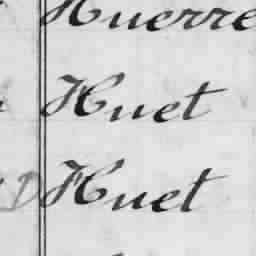 Huerre
Huet
D Huet